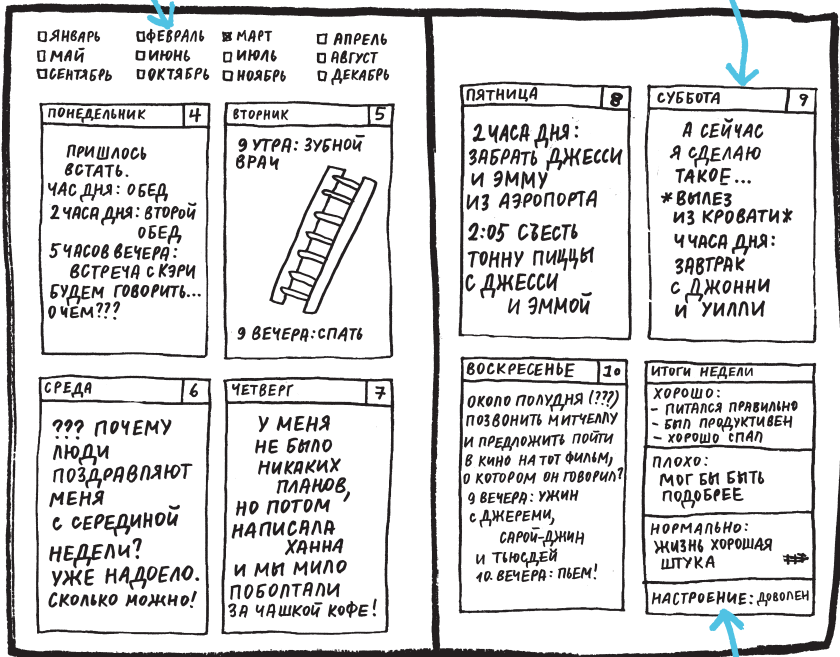 ЯНВАРЬ ФЕВРАЛЬ МАРТ АПРЕЛЬ
МАЙ ИЮНЬ ИЮЛЬ АВГУСТ
СЕНТЯБРЬ ОКТЯБРЬ НОЯБРЬ ДЕКАБРЬ
ПОНЕДЕЛЬНИК 4
ПРИШЛОСЬ
ВСТАТЬ.
ЧАС ДНЯ: ОБЕД
2 ЧАСА ДНЯ: ВТОРОЙ
ОБЕД
5 ЧАСОВ ВЕЧЕРА:
ВСТРЕЧА С КЭРИ
БУДЕМ ГОВОРИТЬ...
О ЧЕМ???
ВТОРНИК 5
9 УТРА: ЗУБНОЙ
ВРАЧ
9 ВЕЧЕРА: СПАТЬ
СРЕДА 6
??? ПОЧЕМУ
ЛЮДИ
ПОЗДРАВЛЯЮТ
МЕНЯ
С СЕРЕДИНОЙ
НЕДЕЛИ?
УЖЕ НАДОЕЛО.
СКОЛЬКО МОЖНО!
ЧЕТВЕРГ 7
У МЕНЯ
НЕ БЫЛО
НИКАКИХ
ПЛАНОВ,
НО ПОТОМ
НАПИСАЛА
ХАННА
И МЫ МИЛО
ПОБОЛТАЛИ
ЗА ЧАШКОЙ КОФЕ!
ПЯТНИЦА 8
2 ЧАСА ДНЯ:
ЗАБРАТЬ ДЖЕССИ
И ЭММУ
ИЗ АЭРОПОРТА
2:05 СЪЕСТЬ
ТОННУ ПИЦЦЫ
С ДЖЕССИ
И ЭММОЙ
СУББОТА 9
А СЕЙЧАС
Я СДЕЛАЮ
ТАКОЕ...
*ВЫЛЕЗ
ИЗ КРОВАТИ*
4 ЧАСА ДНЯ:
ЗАВТРАК
С ДЖОННИ
И УИЛЛИ
ВОСКРЕСЕНЬЕ 10
ОКОЛО ПОЛУДНЯ (???)
ПОЗВОНИТЬ МИТЧЕЛЛУ
И ПРЕДЛОЖИТЬ ПОЙТИ
В КИНО НА ТОТ ФИЛЬМ,
О КОТОРОМ ОН ГОВОРИЛ?
9 ВЕЧЕРА: УЖИН
С ДЖЕРЕМИ,
САРОЙ-ДЖИН
И ТЬЮСДЕЙ
10. ВЕЧЕРА: ПЬЕМ!
ИТОГИ НЕДЕЛИ
ХОРОШО:
- ПИТАЛСЯ ПРАВИЛЬНО
- БЫЛ ПРОДУКТИВЕН
- ХОРОШО СПАЛ
ПЛОХО:
МОГ БЫ БЫТЬ
ПОДОБРЕЕ
НОРМАЛЬНО:
ЖИЗНЬ ХОРОШАЯ
ШТУКА
НАСТРОЕНИЕ: ДОВОЛЕН